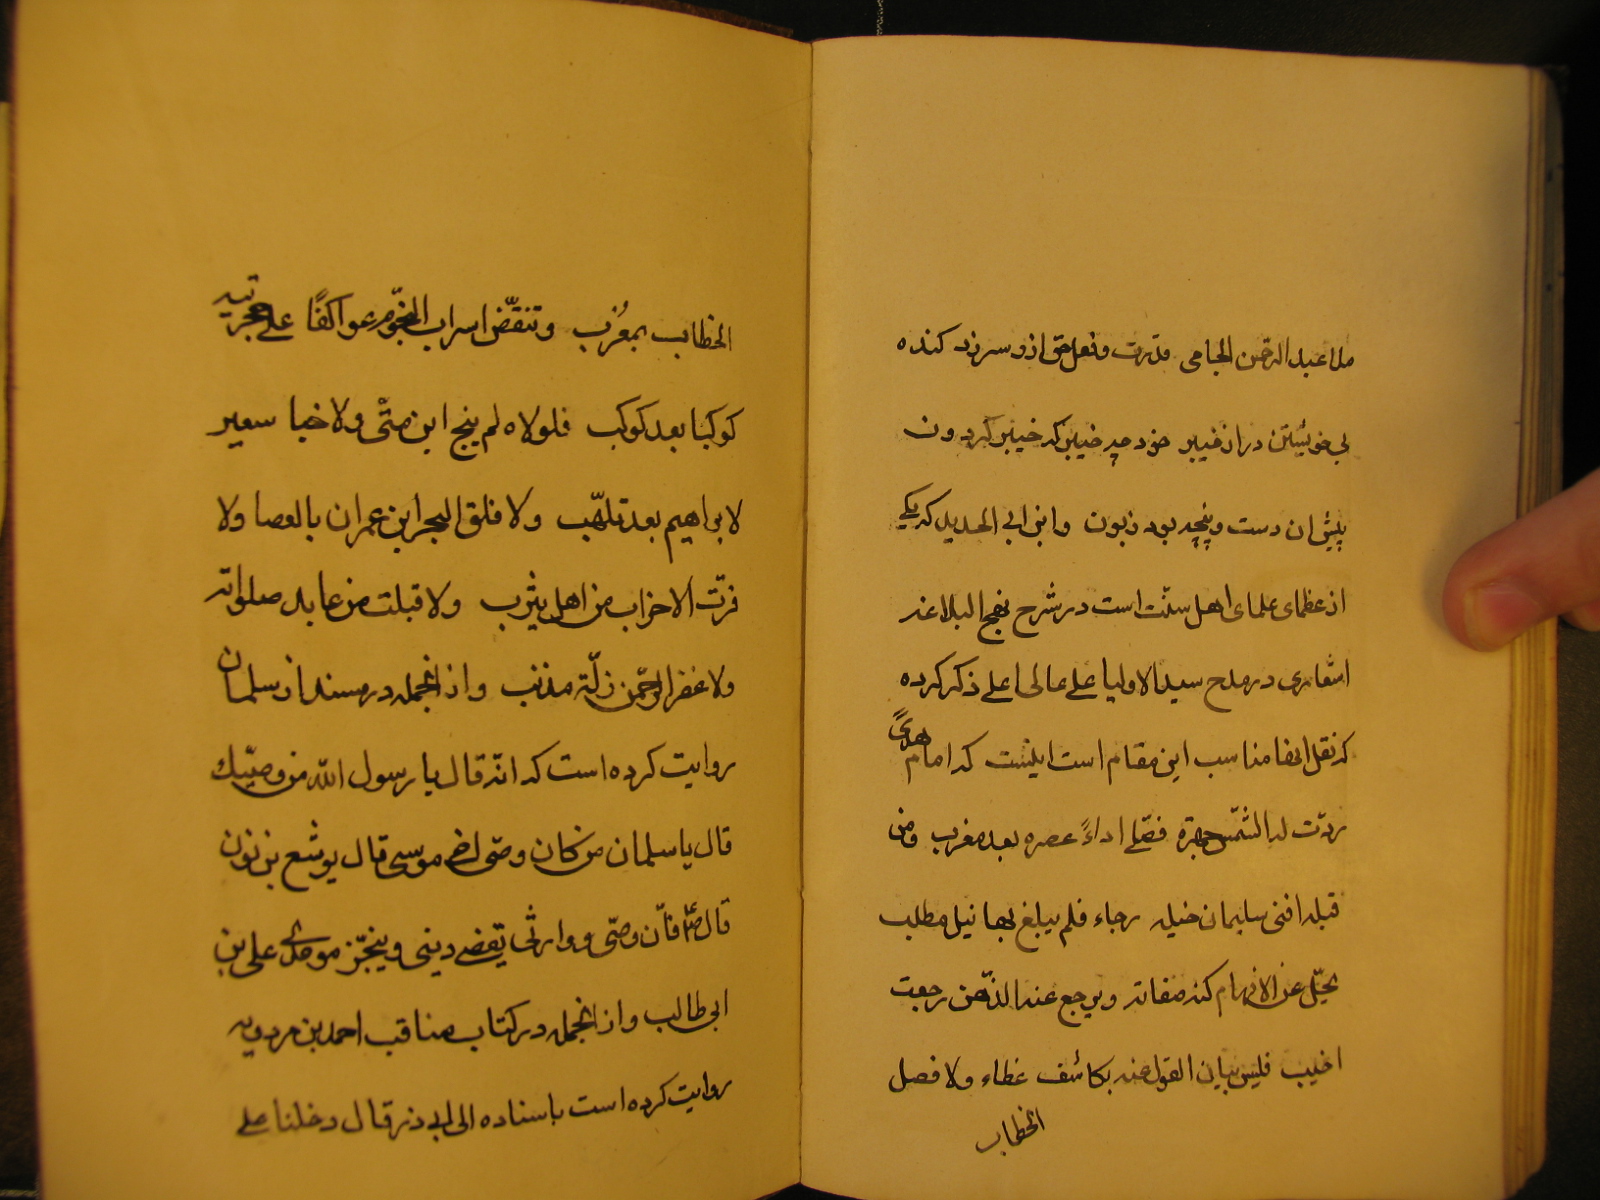 ملا عبد الرحمن الجامی قدرت و فعل حق ازو سر زد کنده
بی خویشتن در از خیبر خود چه خیبر که خیبر کردون
پیش ان دست و پنجه بود زبون وابن ابی الحدید که یکی
از عظمای علمای اهل سنّت است در شرح نهج البلاغه
اشعاری در مدح سید الاولیا علی عالی اعلی ذکر کرده
که نقل انها مناسب این مقام است اینست که امام هدیً
ردّت له الشمس جهرة فصلی اداءً عصره بعد مغرب ومن
قبله افنی سلیمان خیله رجاء فلم یبلغ بها نیل مطلب
یجلّ عن الافهام کنه صفاته ویرجع عنه الذّهن رجعت
اخیب فلیس بیان القول عنه بکاشف غطاء ولا فصل
الخطاب
الخطاب بمعُرب وتنقّض اسراب النجوّم عواکفًا علی حجرتیه
کوکبا بعد کوکب فلولاه لم ینج ابن متّی ولا خبا سعیر
لابراهیم بعد تلهّب ولا فلق البحر ابن عمران بالعصا ولا
فرّت الاحزاب من اهل یثرب ولا قبلت من عابد صلواته
ولا غفر الرحمّن زلّة مذنب واز انجمله در مسند از سلمان
روایت کرده است که انّه قال یا رسول اللّه من وصیّک
قال یا سلمان من کان وصّی اخی موسی قال یوشع بن نون
قال فانّ وصّی ووارثی یقضی دینی وینجّز موعدی علی بن
ابی طالب واز انجمله در کتاب مناقب احمد بن مردویه
روایت کرده است باسناده الی ابی ذر قال دخلنا علی